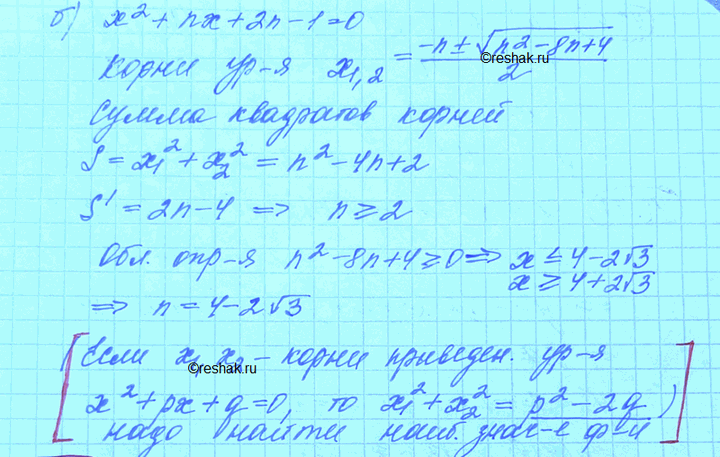 б) x² + nx + 2n - 1 = 0
корни ур-я x₁,₂ = (-n ± √(n² - 8n + 4))/2
©reshak.ru
сумма квадратов корней
S = x₁² + x₂² = n² - 4n + 2
S' = 2n - 4 => n ≥ 2
Обл. опр-я n² - 8n + 4 ≥ 0 => x ≤ 4 - 2√3
x ≥ 4 + 2√3
=> n = 4 - 2√3
(Если x₁, x₂ - корни приведен. ур-я
©reshak.ru
x² + px + q = 0, то x₁² + x₂² = p² - 2q)
надо найти наиб. знач-е ф-и